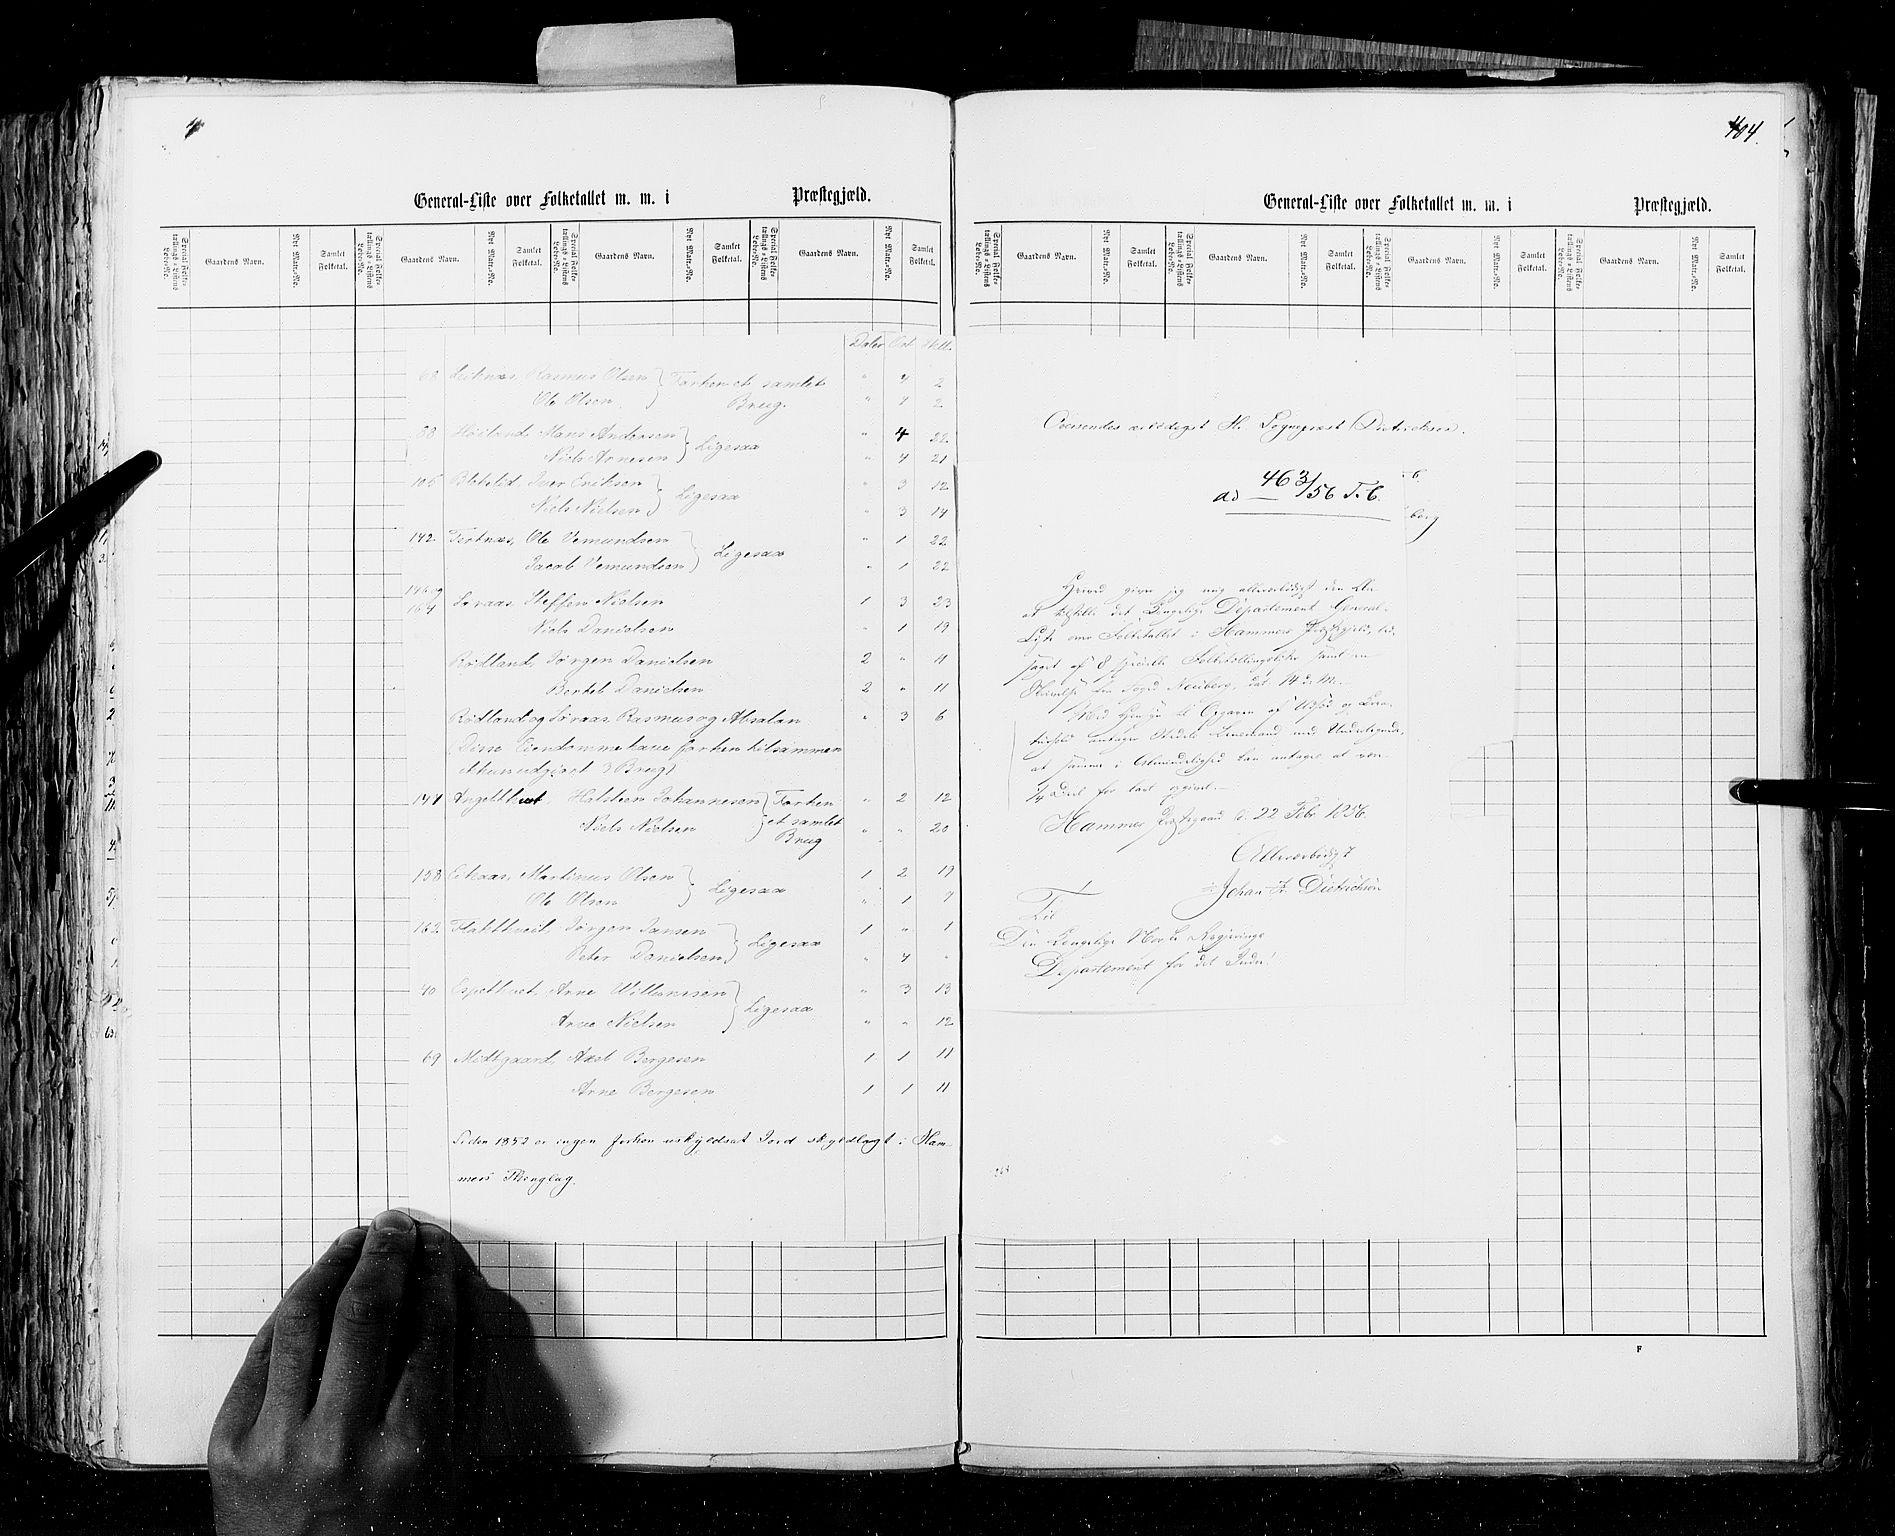 General-Liste over Folketallet m. m. i Præstegjæld.
Special Folketællings-Listens Løbe-No. Gaardens Navn. Nyt Matr.-No. Samlet Folketal. Special Folketællings-Listens Løbe-No. Gaardens Navn. Nyt Matr.-No. Samlet Folketal. Special Folketællings-Listens Løbe-No. Gaardens Navn. Nyt Matr.-No. Samlet Folketal. Special Folketællings-Listens Løbe-No. Gaardens Navn. Nyt Matr.-No. Samlet Folketal.
Daler Ort Skill.
68 Leknæs, Rasmus Olsen } Forhen et samlet " 4 2
Ole Olsen } Brug. " 4 2
88 Høiland, Mons Andersen } Ligesaa " 4 22
Niels Arnesen " 4 21
106 Iver Eriksen } Ligesaa " 3 12
Niels Nielsen " 3 14
142 Tertnæs, Ole Vemundsen } Ligesaa " 1 22
Jacob Vemundsen " 1 22
146 og
164 Søraas, Steffen Nielsen 1 3 23
Niels Danielsen " 1 19
Rødland, Jørgen Danielsen 2 " 11
Bertel Danielsen 2 " 11
Rødland og Søraas, Rasmus og Absalon " 3 6
(Disse Eiendomme have forhen tilsammen
kun udgjort 3 Brug)
Holsteen Johannesen } Forhen " 2 12
Niels Nielsen } et samlet " " 20
Brug
158 Eikaas, Martinus Olsen } Ligesaa 1 2 19
Ole Olsen " 1 9
162 Flaktveit Jørgen Jansen } Ligesaa 1 " 1
Peter Danielsen " 4 "
40 Espethvet, Arne Willumsen } Ligesaa " 3 13
Arne Nielsen " " 12
69 Midtgaard, Axel Børgesen 1 1 11
Arne Børgesen 1 1 11
Siden 1852 er ingen forhen uskyldsat Jord skyldlagt i Ham-
mers Thinglag.
404.
General-Liste over Folketallet m. m. i Præstegjæld.
Special Folketællings-Listens Løbe-No. Gaardens Navn. Nyt Matr.-No. Samlet Folketal. Special Folketællings-Listens Løbe-No. Gaardens Navn. Nyt Matr.-No. Samlet Folketal. Special Folketællings-Listens Løbe-No. Gaardens Navn. Nyt Matr.-No. Samlet Folketal. Special Folketællings-Listens Løbe-No. Gaardens Navn. Nyt Matr.-No. Samlet Folketal.
Oversendes ærbødigst Hr. Sognepræst Dietrichson.
ad 463/56 T.C.
berg
Herved giver jeg mig allerærbødigst den Ære
at tilstille det Kongelige Departement General-
Liste over Folketallet i Hammers Præstegjeld, led-
saget af 8 specielle Folketællingslister samt en
Skrivelse fra Foged Neuberg, dat. 14 d. M.
Med Hensyn til Opgaven af Udsæd og Krea-
turhold antager Stedets Lensmand med Undertegnede,
at samme i Almindelighed kan antages at være
1/4 Deel for lavt opgivet.
Hammer Præstegaard d. 22 Febr. 1856.
Allerærbødigst
Johan F. Dietrichson
Til
Den Kongelige Norske Regjerings
Departement for det Indre!
F